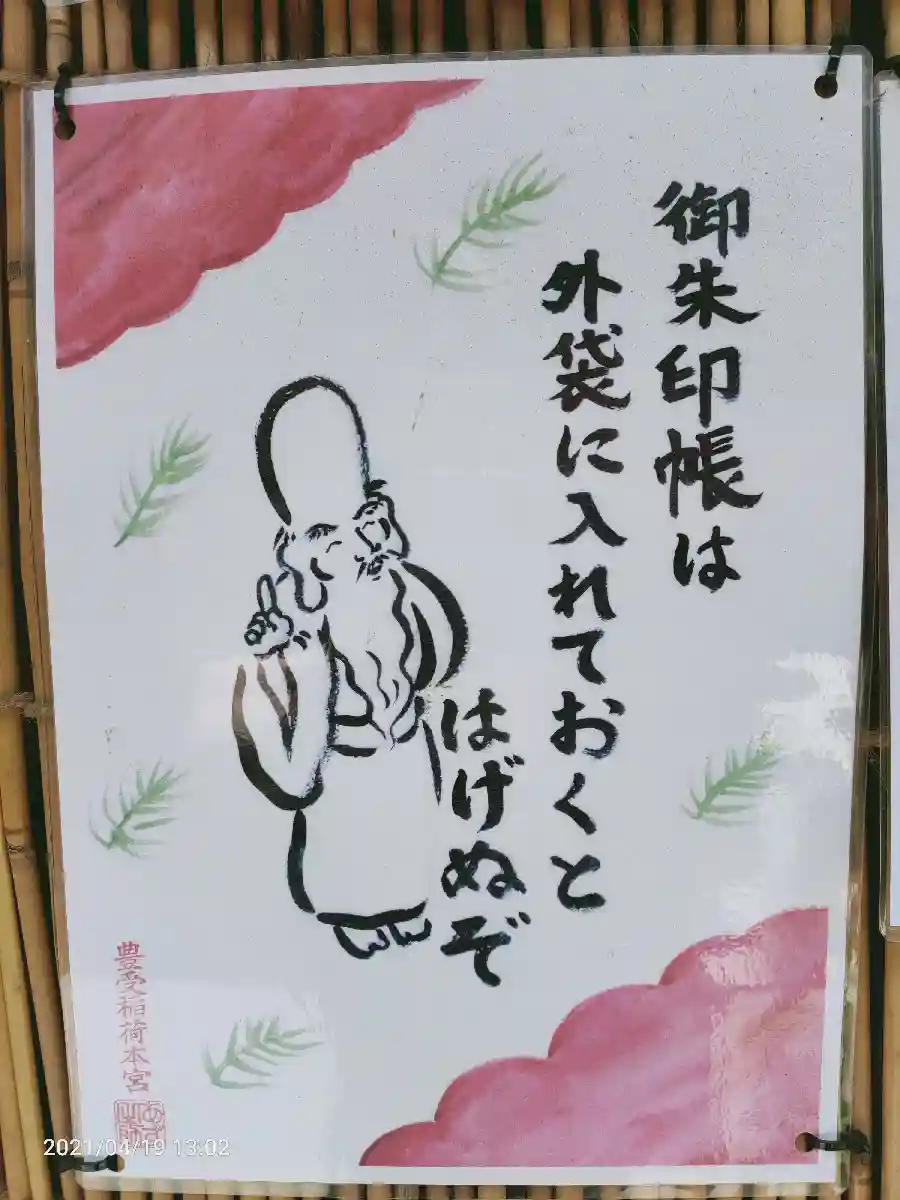 御朱印帳は
外袋に入れておくと
はげぬぞ
豊受稲荷本宮
2021/04/19 13:02